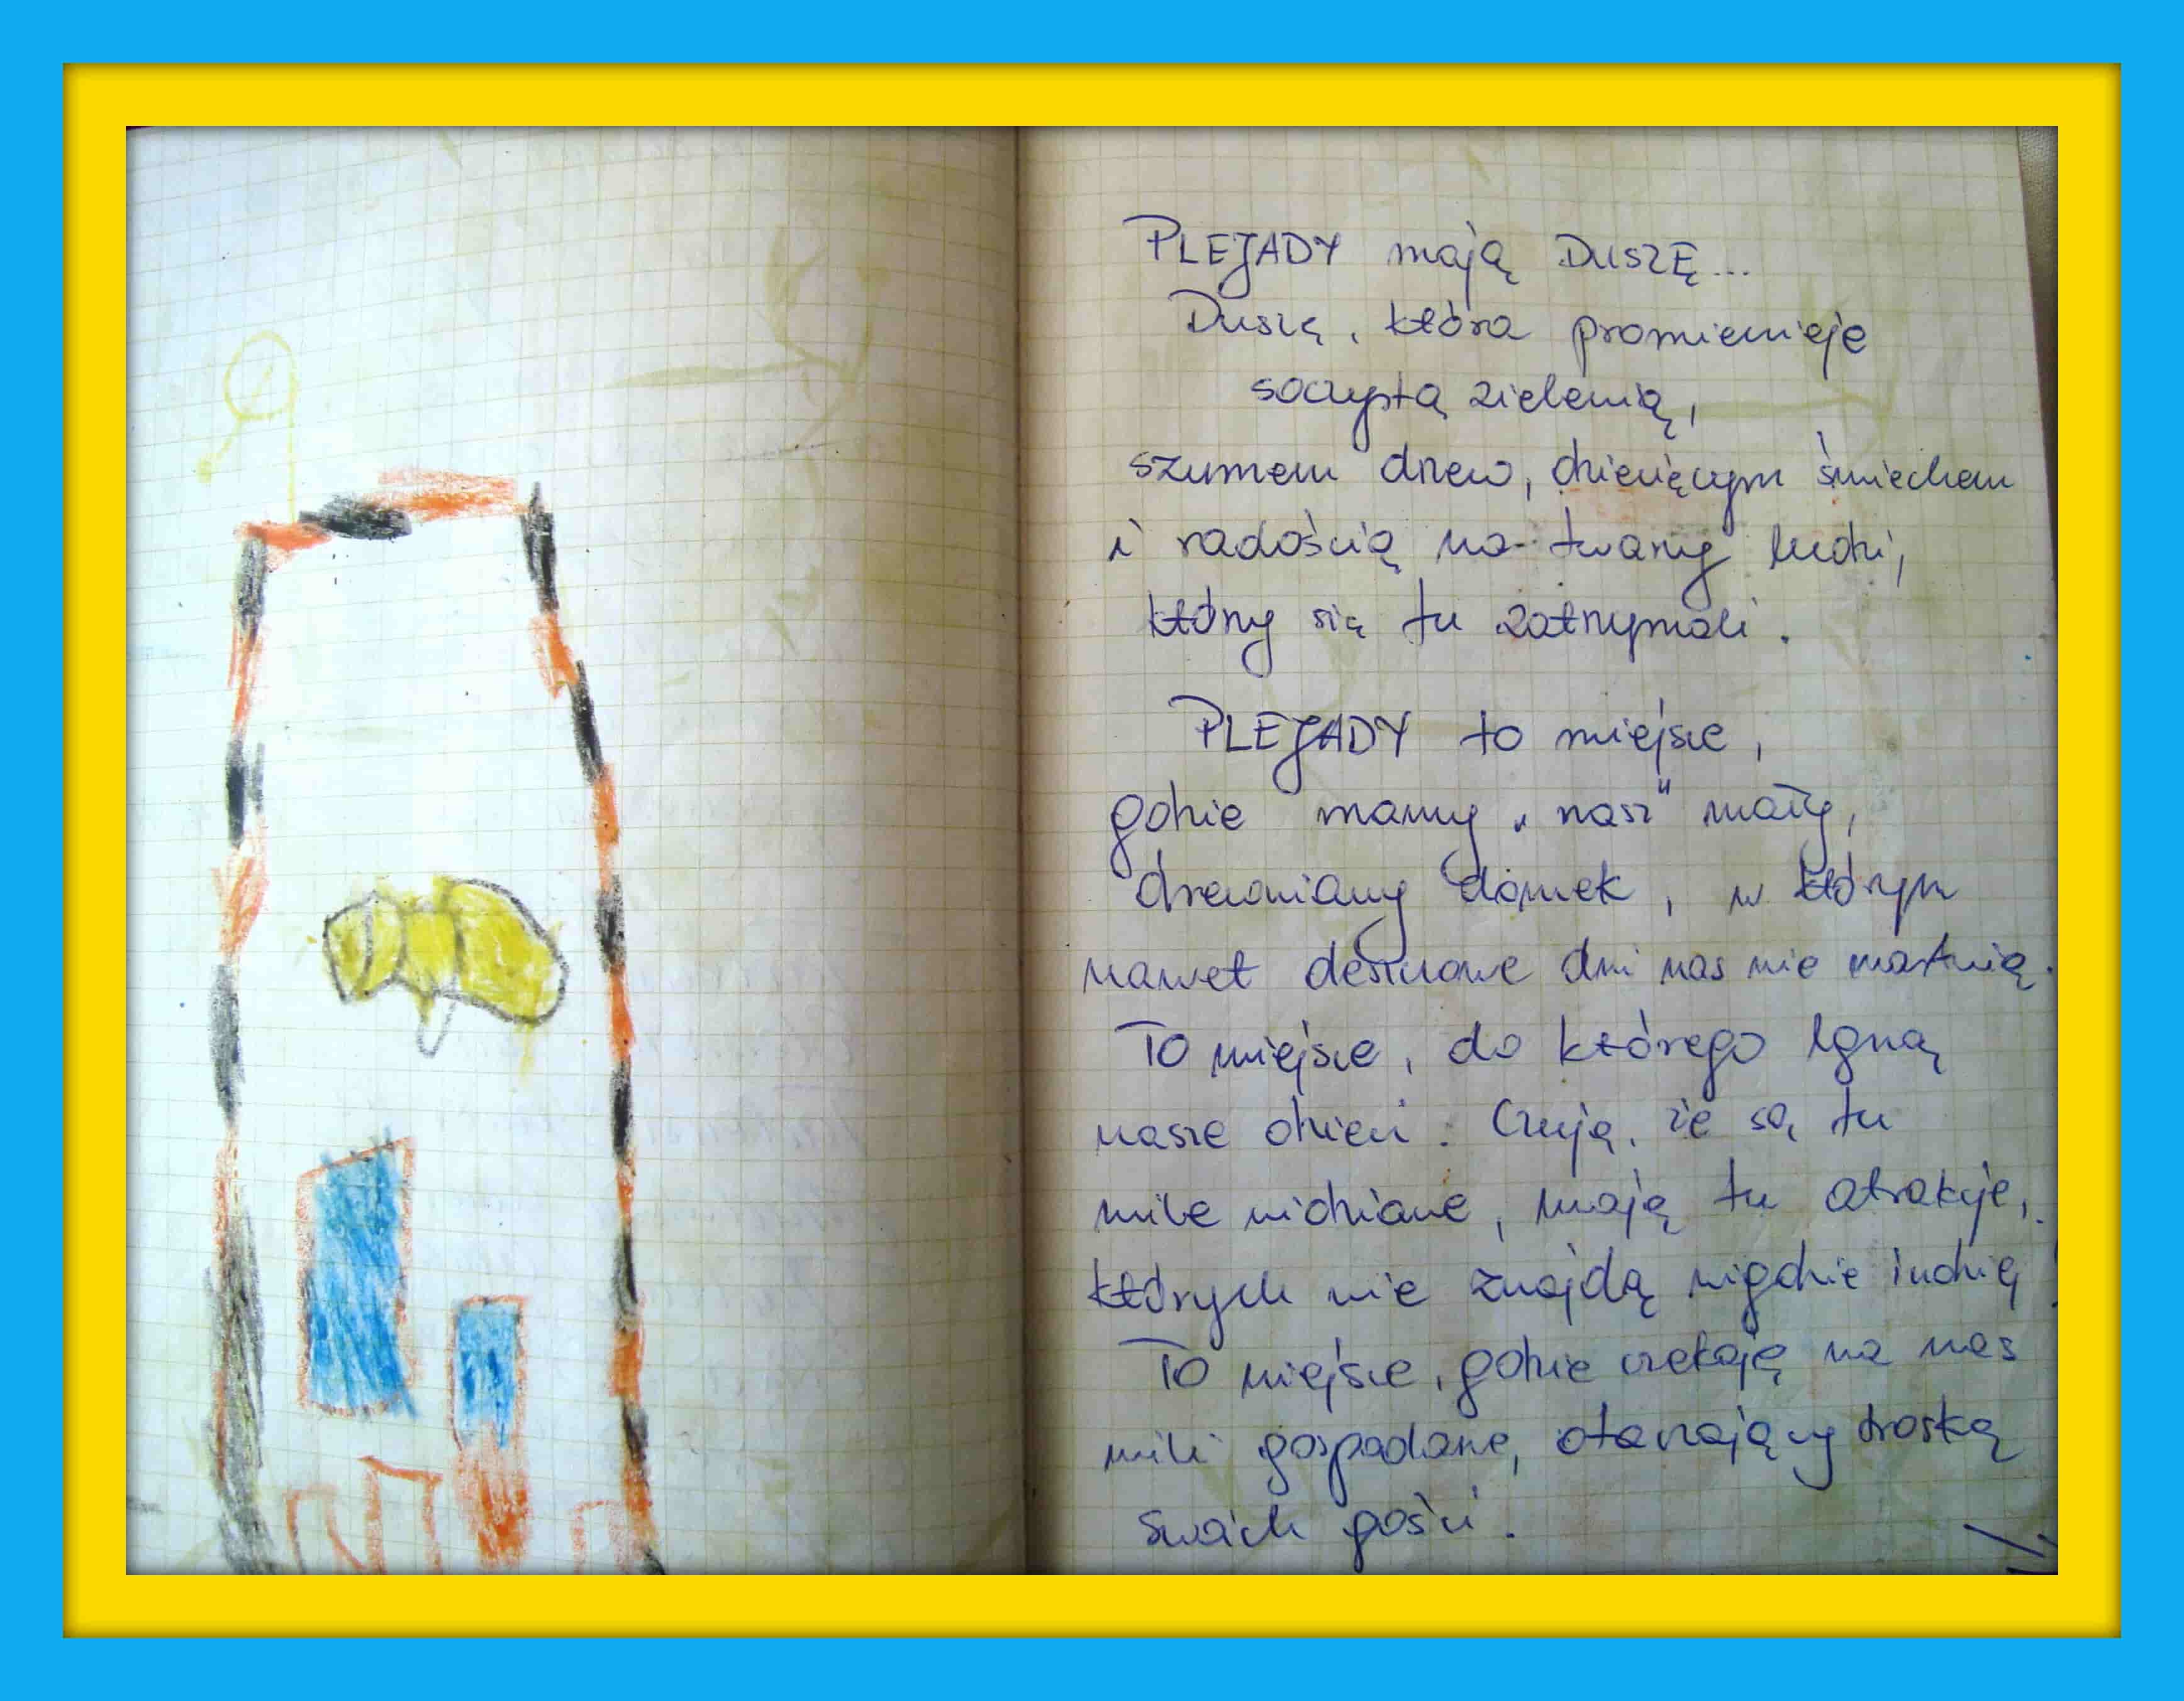 PLEJADY mają DUSZĘ...
Duszę, która promienieje
soczystą zielenią,
szumem drzew, dziecięcym śmiechem
i radością na twarzy ludzi,
którzy się tu zatrzymali.
PLEJADY to miejsce,
gdzie mamy „nasz" mały,
drewniany domek, w którym
nawet deszczowe dni nas nie martwią.
To miejsce, do którego lgną
nasze dzieci. Czują, że są tu
mile widziane, mają tu atrakcje,
których nie znajdą nigdzie indziej
To miejsce, gdzie czekają na nas
mili gospodarze, otaczający troską
swoich gości.